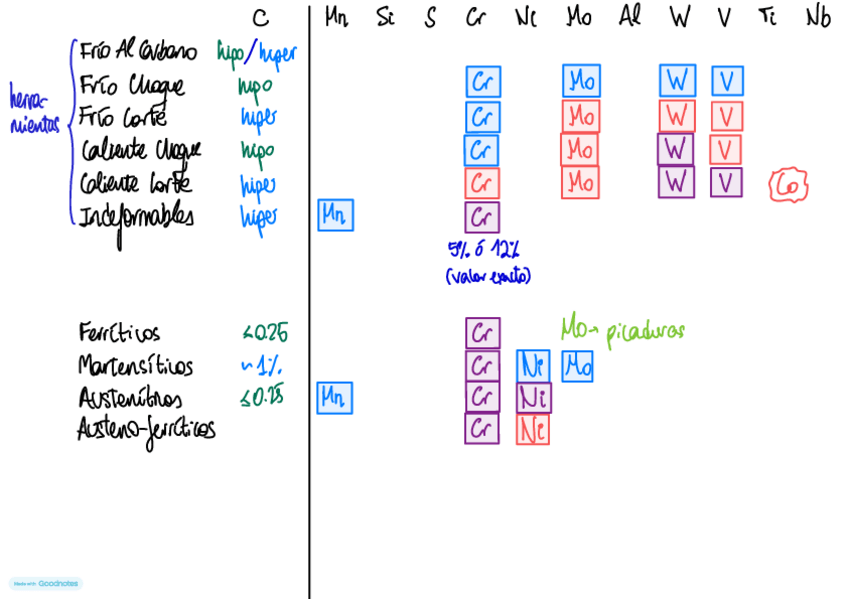 C Mn Si S Cr Ni Mo Al W V Ti Nb
herra-
mientas
Frío Al Carbono hipo/hiper
Frío Choque hipo Cr Mo W V
Frío Corte hiper Cr Mo W V
Caliente Choque hipo Cr Mo W V
Caliente Corte hiper Cr Mo W V Co
Indeformables hiper Mn Cr
5% ó 12%
(valor exacto)
Ferríticos <0.25 Cr Mo→ picaduras
Martensíticos ~1% Cr Ni Mo
Austeníticos ≤0.25 Mn Cr Ni
Austeno-ferríticos Cr Ni
Made with Goodnotes